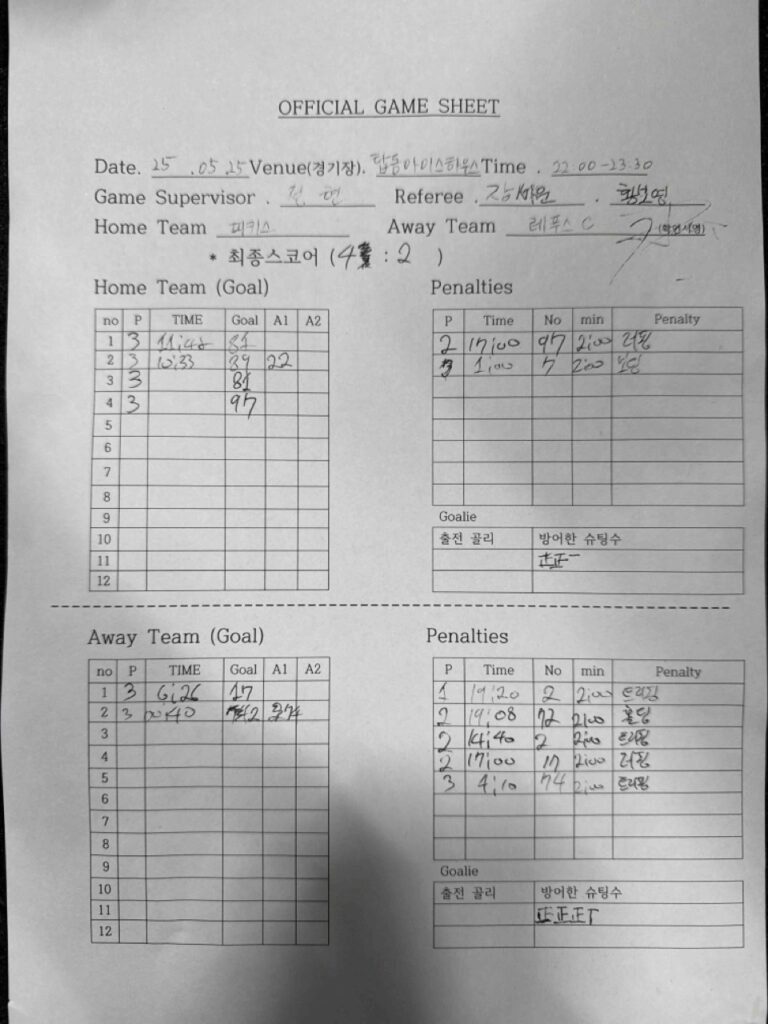 OFFICIAL GAME SHEET
Date. 25 .05.25 Venue(경기장). 탑동아이스하우스 Time . 22:00-23:30
Game Supervisor . Referee . .
Home Team 피키스 Away Team 레푸스 C (확인서명)
* 최종스코어 (4 : 2 )
Home Team (Goal) Penalties
no P TIME Goal A1 A2
1 3 11:42 81
2 3 10:33 89 22
3 3 81
4 3 97
5
6
7
8
9
10
11
12
P Time No min Penalty
2 17:00 97 2:00 러핑
3 1:00 7 2:00 보딩
Goalie
출전 골리 방어한 슈팅수
正正一
Away Team (Goal) Penalties
no P TIME Goal A1 A2
1 3 6:26 17
2 3 00:40 42 74
3
4
5
6
7
8
9
10
11
12
P Time No min Penalty
1 19:20 2 2:00 트리핑
2 19:08 72 2:00 홀딩
2 14:40 2 2:00 트리핑
2 17:00 17 2:00 러핑
3 4:10 74 2:00 트리핑
Goalie
출전 골리 방어한 슈팅수
正正正丅